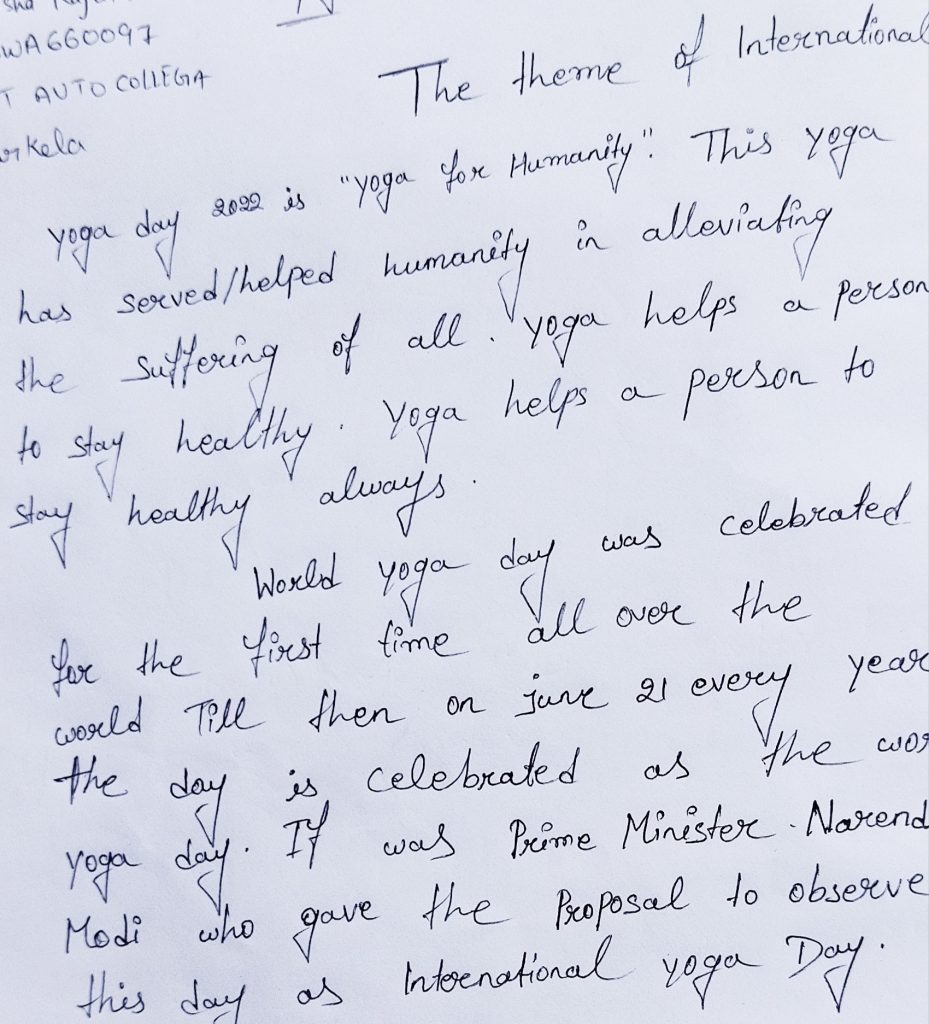 WA660097
T AUTO COLLEGA
The theme of International
yoga day 2022 is "yoga for Humanity". This yoga
has served/helped humanity in alleviating
the suffering of all. yoga helps a person
to stay healthy. Yoga helps a person to
stay healthy always.
World yoga day was celebrated
for the first time all over the
world Till then on june 21 every year
the day is celebrated as the wor
yoga day. It was Prime Minister. Narend
Modi who gave the Proposal to observe
this day as International yoga Day.